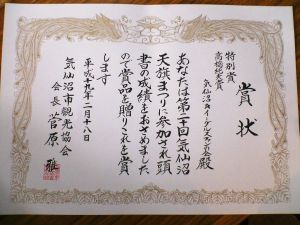 賞状
特別賞
高橋純夫賞
気仙沼イーグルスタコ会殿
あなたは第二十回気仙沼
天旗まつりに参加され頭
書の成績をおさめました
ので賞品を贈りこれを賞
します
平成十九年二月十八日
気仙沼市観光協会
会長 菅原 雅